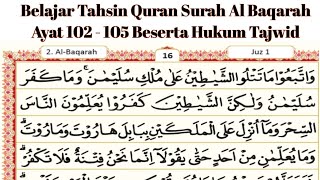 Belajar Tahsin Quran Surah Al Baqarah
Ayat 102 - 105 Beserta Hukum Tajwid
2. Al-Baqarah
16
Juz 1
وَاتَّبَعُوْا مَا تَتْلُوا الشَّيٰطِيْنُ عَلٰى مُلْكِ سُلَيْمٰنَ ۚ وَمَا كَفَرَ
سُلَيْمٰنُ وَلٰكِنَّ الشَّيٰطِيْنَ كَفَرُوْا يُعَلِّمُوْنَ النَّاسَ
السِّحْرَ وَمَآ اُنْزِلَ عَلَى الْمَلَكَيْنِ بِبَابِلَ هَارُوْتَ وَمَارُوْتَ ۗ
وَمَا يُعَلِّمٰنِ مِنْ اَحَدٍ حَتّٰى يَقُوْلَآ اِنَّمَا نَحْنُ فِتْنَةٌ فَلَا تَكْفُرْ ۗ